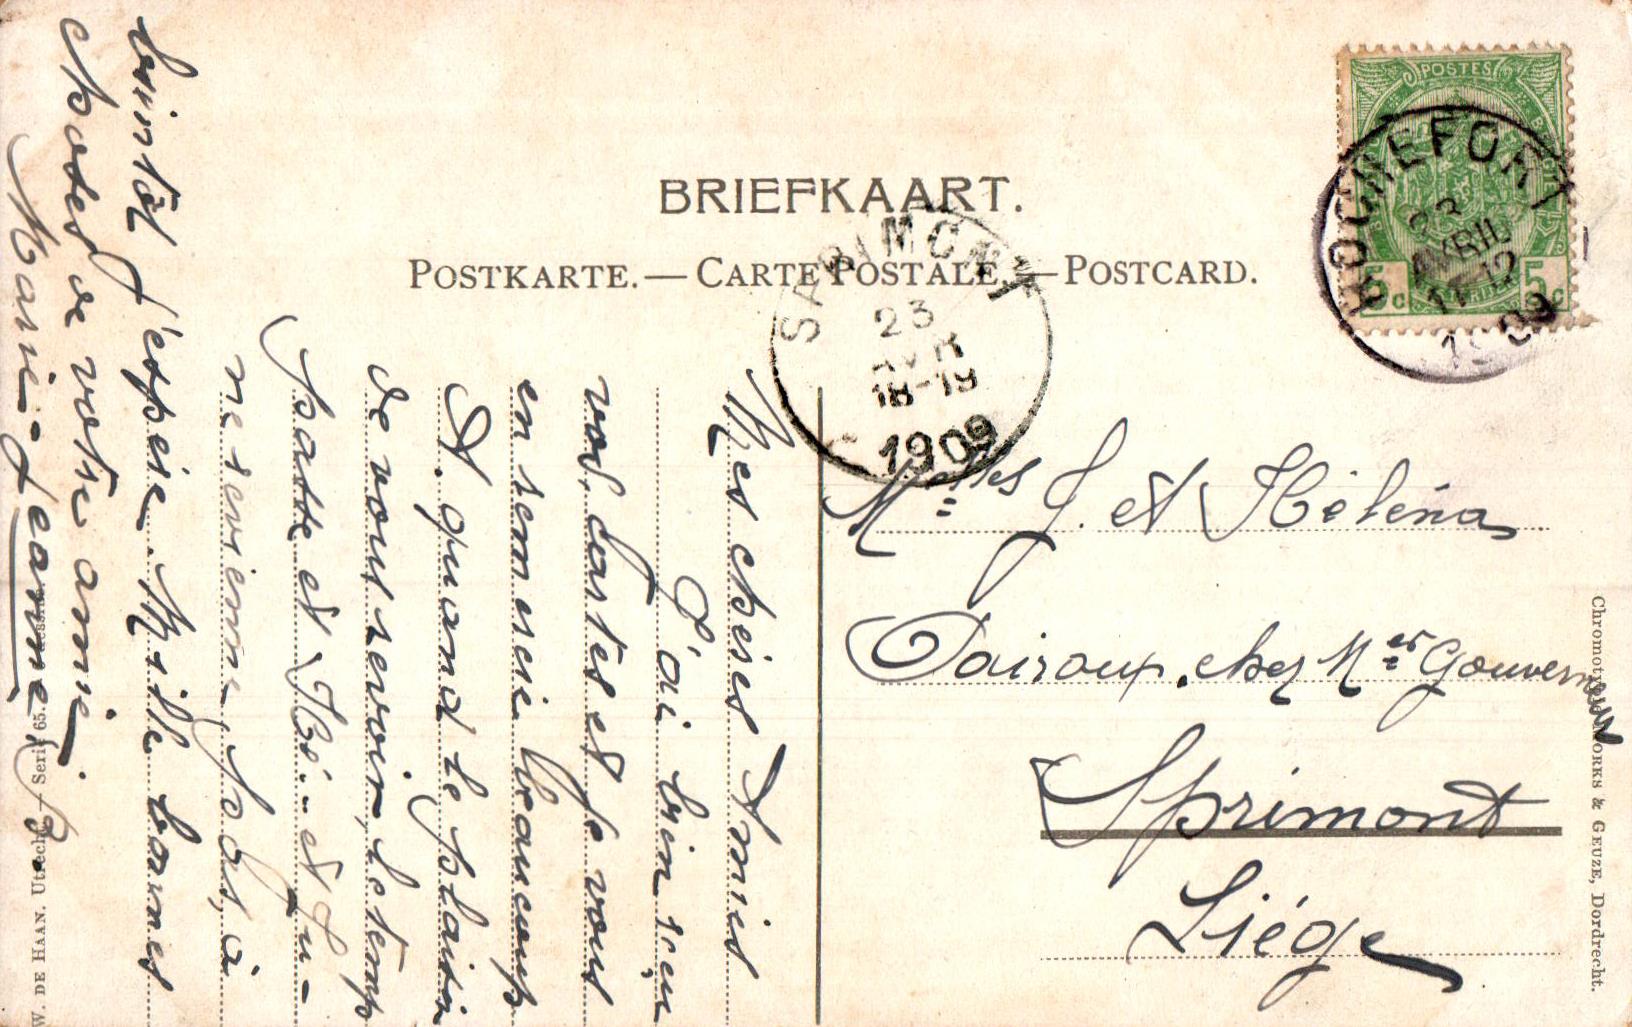 BRIEFKAART.
POSTKARTE. — CARTE POSTALE. — POSTCARD.
POSTES
5 c
5 c
ROCHEFORT
23
AVRIL
11-12
1909
SPRIMONT
23
AVR
18-19
1909
Mlles J. et Héléna
Pairoux. chez Mer Gouverneur
Sprimont
Liége
Mes chères Amies
J'ai bien reçu
vos cartes et je vous
en remercie beaucoup
A quand le plaisir
de vous revoir, le temps
passe et Thé- et Ju-
ne revienn, pas, à
bientôt j'espère. Mille bonnes
choses de votre amie
Marie-Jeanne
W. DE HAAN. Utrecht. — Serie 65.
WORKS & GEUZE, Dordrecht.